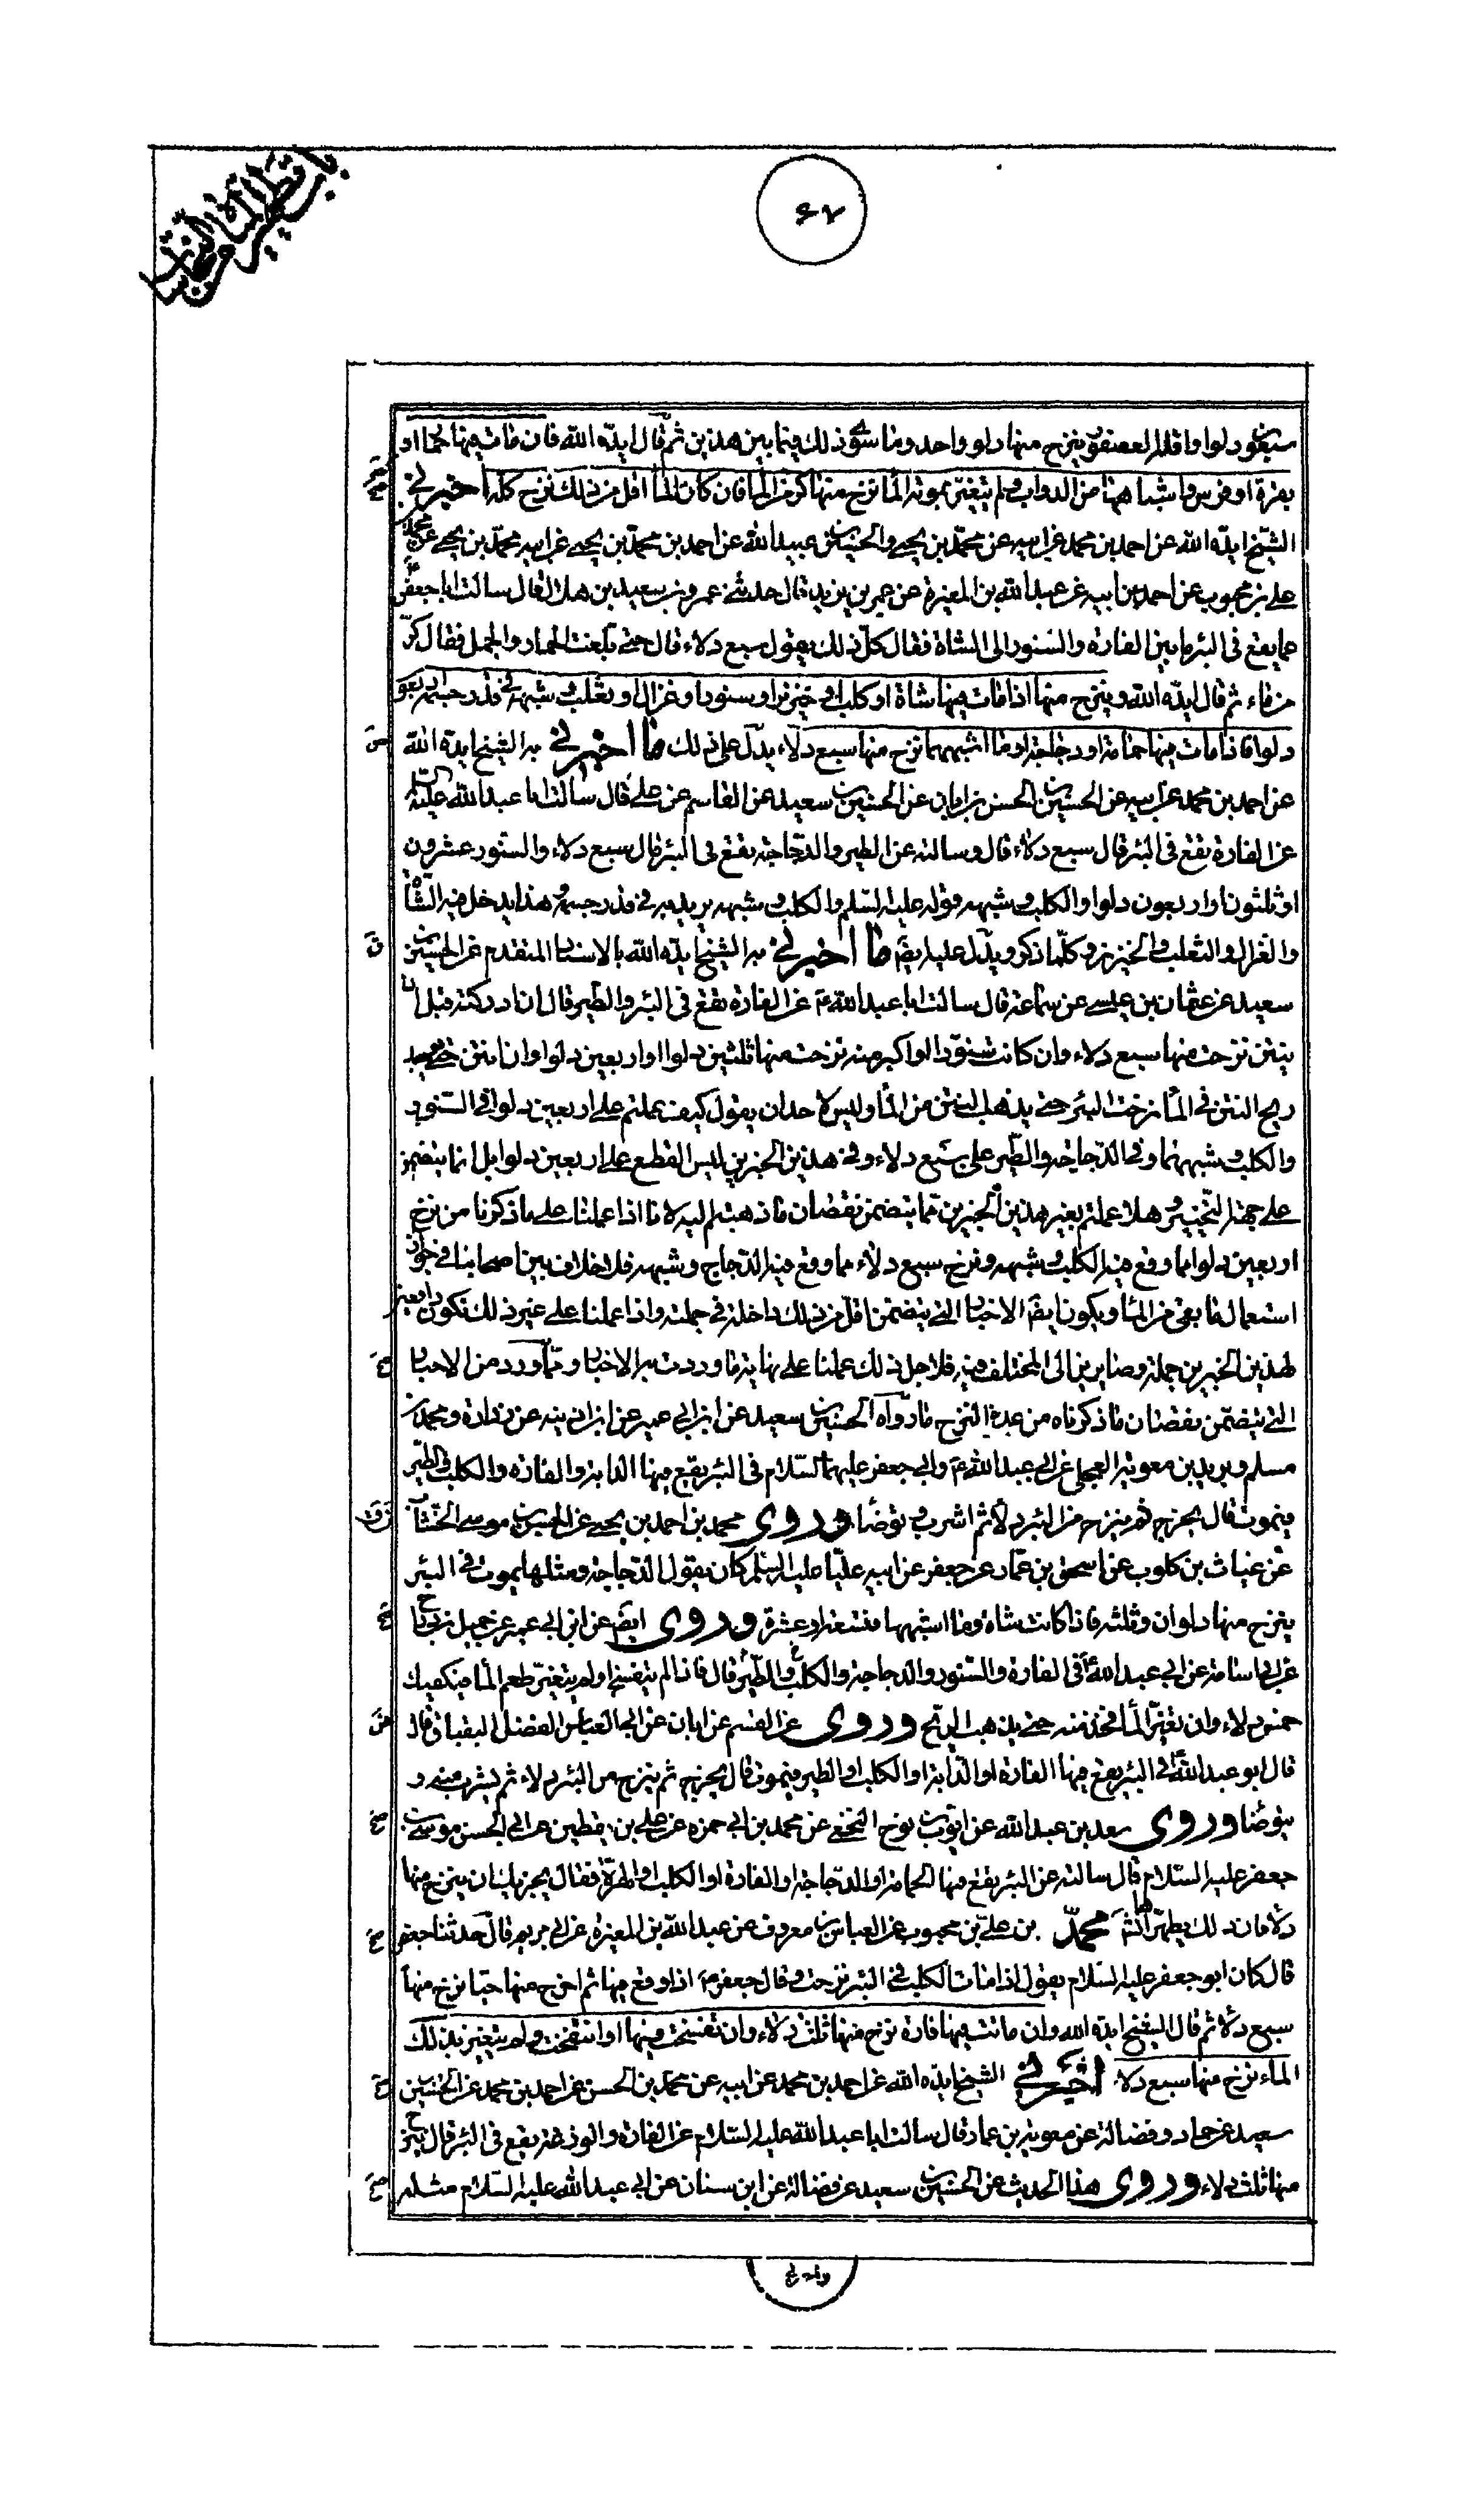 باب تطهير المياه من النجاسات
٦٧
سبعون دلوا واقله العصفور ينزح منها دلو واحد وما سوى ذلك فيما بين هذين ثم قال ايده الله فان مات فيها حمار او
بقرة او فرس واشباهها من الدواب ولم يتغير بموته الماء نزح منها كر من الماء فان كان الماء اقل من ذلك نزح كله اخبرني
الشيخ ايده الله عن احمد بن محمد عن ابيه عن محمد بن يحيى والحسين بن عبيد الله عن احمد بن محمد بن يحيى عن ابيه محمد بن يحيى عن محمد بن
علي بن محبوب عن احمد عن ابيه عن عبد الله بن المغيرة عن عمر بن يزيد قال حدثني عمرو بن سعيد بن هلال قال سالت ابا جعفر ع
عما يقع في البئر ما بين الفارة والسنور الى الشاة فقال كل ذلك يقول سبع دلاء قال حتى بلغت الحمار والجمل فقال كر
من ماء ثم قال ايده الله وينزح منها اذا مات فيها شاة او كلب او خنزير او سنور او غزال او ثعلب وشبهه في قدر جسمه اربعون
دلوا فاذا مات فيها حمامة او دجاجة او ما اشبههما نزح منها سبع دلاء يدل على ذلك ما اخبرني به الشيخ ايده الله
عن احمد بن محمد عن ابيه عن الحسين بن الحسن بن ابان عن الحسين بن سعيد عن القاسم عن علي قال سالت ابا عبد الله عليه السلام
عن الفارة تقع في البئر قال سبع دلاء قال وسالته عن الطير والدجاجة تقع في البئر قال سبع دلاء والسنور عشرون
او ثلثون او اربعون دلوا والكلب وشبهه قوله عليه السلم والكلب وشبهه يريد به في قدر جسمه وهذا يدخل فيه الشاة
والغزال والثعلب والخنزير وكلما ذكر ويدل عليه ايضَ ما اخبرني به الشيخ ايده الله بالاسناد المتقدم عن الحسين بن
سعيد عن عثمان بن عيسى عن سماعة قال سالت ابا عبد الله ع عن الفارة تقع في البئر والطير قال ان ادركته قبل ان
ينتن نزحت منها سبع دلاء وان كانت سنورا او اكبر منه نزحت منها ثلثين دلوا او اربعين دلوا وان انتن حتى يوجد
ريح النتن في الماء نزحت البئر حتى يذهب النتن من الماء وليس لاحد ان يقول كيف عملتم على اربعين دلوا في السنور
والكلب وشبههما وفي الدجاجة والطير على سبع دلاء وفي هذين الخبرين ليس القطع على اربعين دلوا بل انما يتضمن
على جهة التخيير وهلا عملتم بغير هذين الخبرين مما يتضمن نقصان ما ذهبتم اليه لانا اذا عملنا على ما ذكرنا من نزح
اربعين دلوا مما وقع فيه الكلب وشبهه ونزح سبع دلاء مما وقع فيه الدجاج وشبهه فلا خلاف بين اصحابنا في جواز
استعمال ما بقى من الماء ويكون ايضَ الاخبار التي يتضمن اقل من ذلك داخلة في جملته واذا عملنا على غير ذلك نكون دافعين
لهذين الخبرين جملة وصايرين الى المختلف فيه فلاجل ذلك عملنا على نهاية ما وردت به الاخبار ومما ورد من الاخبار
التي يتضمن نقصان ما ذكرناه من عدة النزح ما رواه الحسين بن سعيد عن ابن ابي عمير عن ابن اذينه عن زرارة ومحمد بن
مسلم وبريد بن معوية العجلي عن ابي عبد الله ع وابي جعفر عليهما السلام في البئر يقع فيها الدابة والفارة والكلب والطير
فيموت قال يخرج ثم ينزح من البئر دلاء ثم اشرب وتوضأ وروى محمد بن احمد بن يحيى عن الحسن بن موسى الخشاب
عن غياث بن كلوب عن اسحق بن عمار عن جعفر عن ابيه ان عليا عليه السلم كان يقول الدجاجة ومثلها يموت في البئر
ينزح منها دلوان وثلثه فاذا كانت شاة وما اشبهها فتسعة او عشرة وروى ايضَ عن ابن ابي عمير عن جميل بن دراج
عن ابي اسامة عن ابي عبد الله ع في الفارة والسنور والدجاجة والكلب والطير قال فاذا لم يتفسخ او لم يتغير طعم الماء فيكفيك
خمس دلاء وان تغير الماء فخذ منه حتى يذهب الريح وروى عن القسم عن ابان عن ابي العباس الفضل البقباق قال
قال ابو عبد الله ع في البئر يقع فيها الفارة او الدابة او الكلب او الطير فيموت قال يخرج ثم ينزح من البئر دلاء ثم يشرب منه و
يتوضأ وروى سعد بن عبد الله عن ايوب بن نوح النخعي عن محمد بن ابي حمزه عن علي بن يقطين عن ابي الحسن موسى بن
جعفر عليه السلام قال سالته عن البئر يقع فيها الحمامة او الدجاجة او الفارة او الكلب او الهرة فقال يجزيك ان ينزح منها
دلاء فان ذلك يطهرها انشَ محمد بن علي بن محبوب عن العباس بن معروف عن عبد الله بن المغيرة عن ابي مريم قال حدثنا جعفر
قال كان ابو جعفر عليه السلام يقول اذا مات الكلب في البئر نزحت وقال جعفر ع اذا وقع فيها ثم اخرج منها حيا نزح منها
سبع دلاء ثم قال الشيخ ايده الله وان ماتت فيها فارة نزح منها ثلث دلاء وان تفسخت فيها او انتفخت ولم يتغير بذلك
الماء نزح منها سبع دلاء اخبرني الشيخ ايده الله عن احمد بن محمد عن ابيه عن محمد بن الحسن عن احمد بن محمد عن الحسين بن
سعيد عن حماد وفضالة عن معوية بن عمار قال سالت ابا عبد الله عليه السلام عن الفارة والوزغة يقع في البئر قال ينزح
منها ثلث دلاء وروى هذا الحديث عن الحسين بن سعيد عن فضالة عن ابن سنان عن ابي عبد الله عليه السلام مثله